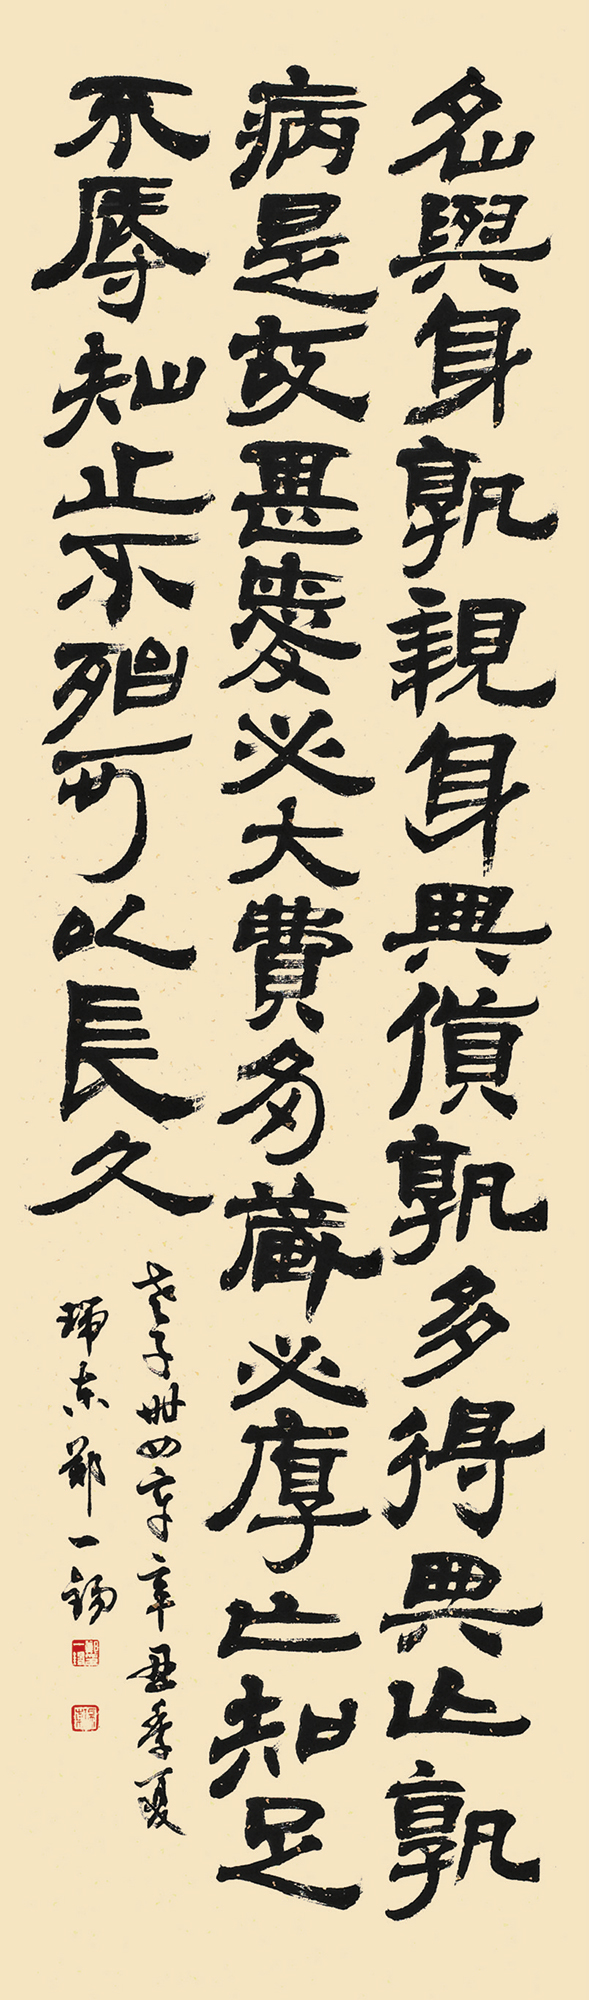 名與身孰親身與貨孰多得與亡孰
病是故甚愛必大費多藏必厚亡知足
不辱知止不殆可以長久
老子卌四章辛丑季夏
瑞東鄭一錫